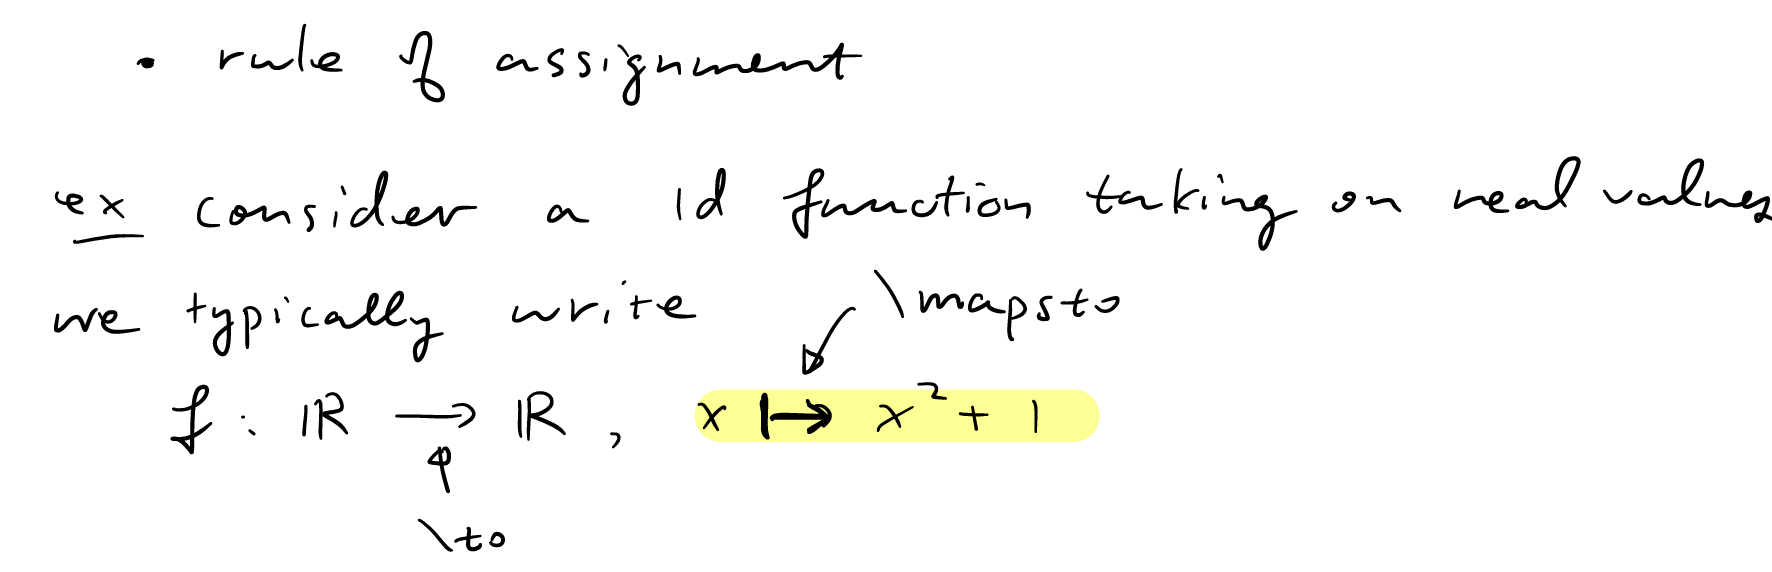 • rule of assignment
ex consider a 1d function taking on real values
we typically write
\mapsto
f : ℝ ⟶ ℝ , x ↦ x² + 1
\to